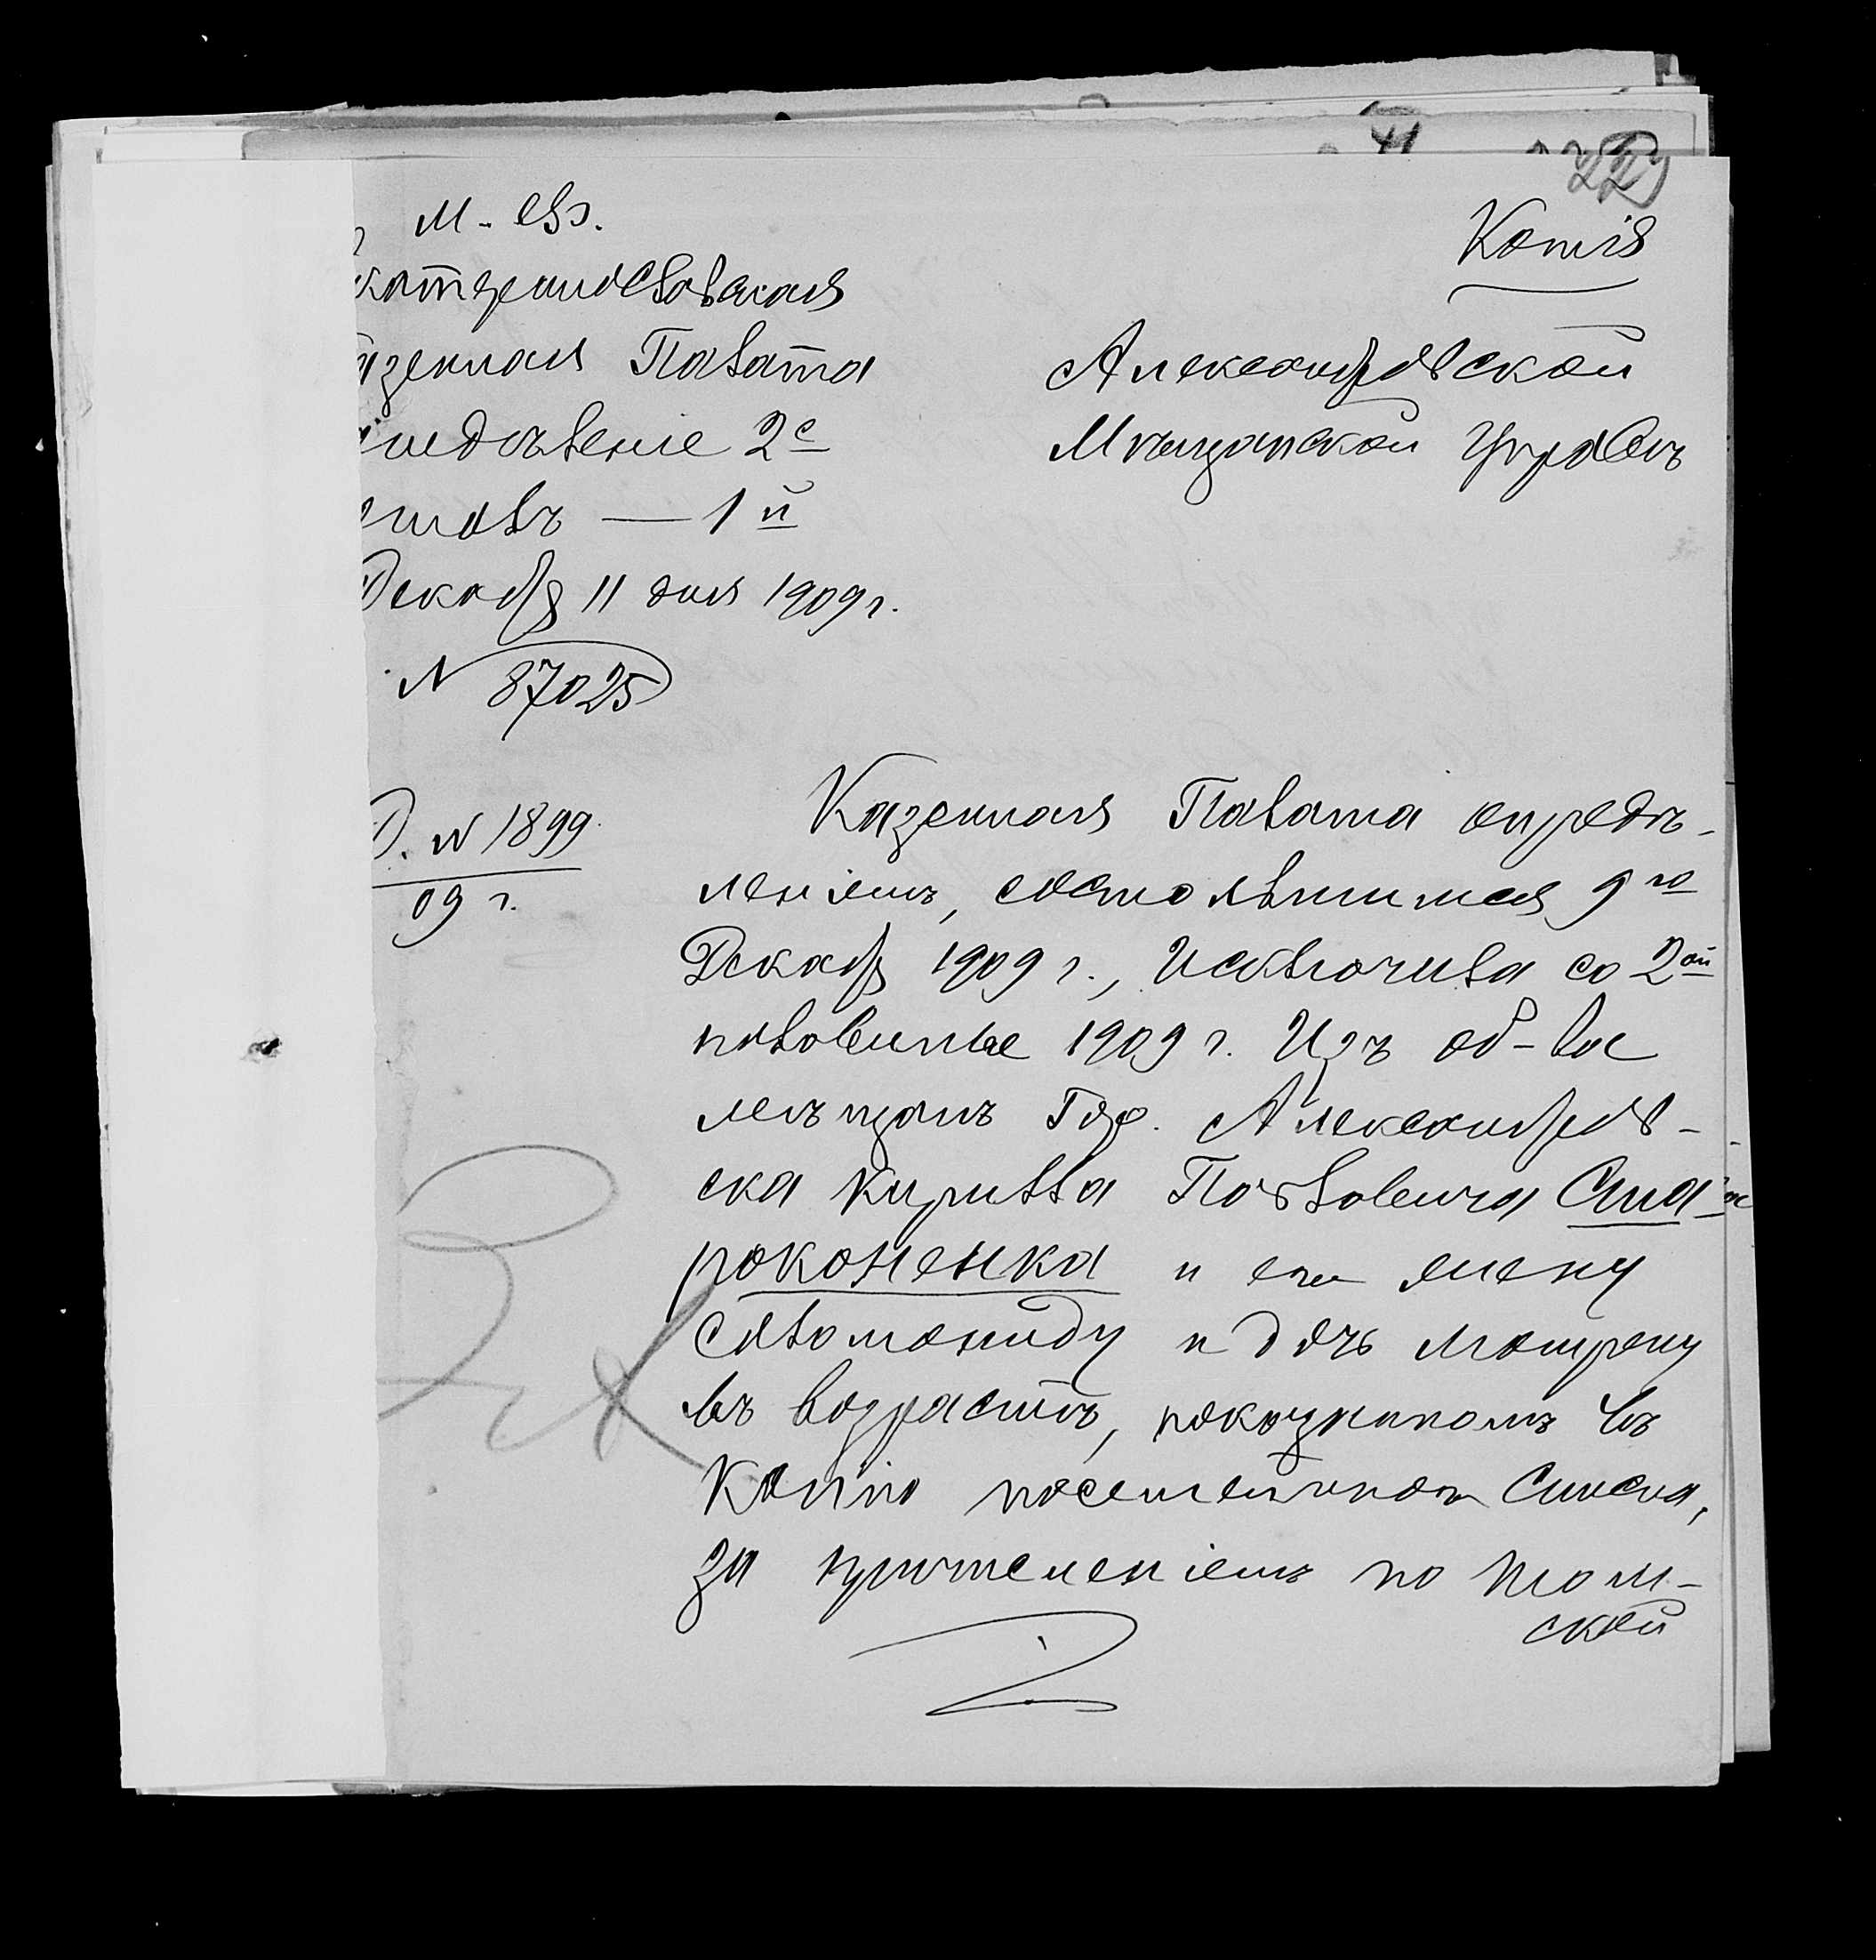 М. Ф.
катеринославская
азенная Палата
тдѣленіе 2е
толъ — 1й
Декабря 11 дня 1909 г.
N 87025
Д. N 1899
09 г.
Копія
Александровской
Мѣщанской Управѣ
Казенная Палата опредѣ-
леніемъ, состоявшимся 9го
Декабря 1909 г., Исключила со 2ой
половины 1909 г. Изъ об-ва
мѣщанъ Гор. Александров-
ска Кирилла Павловича Ста-
роконенка и его жену
Соломониду и дочь Матрену
въ возрастѣ, показанномъ въ
Копіи посемейнаго Списка,
за причисленіемъ по Том-
ской